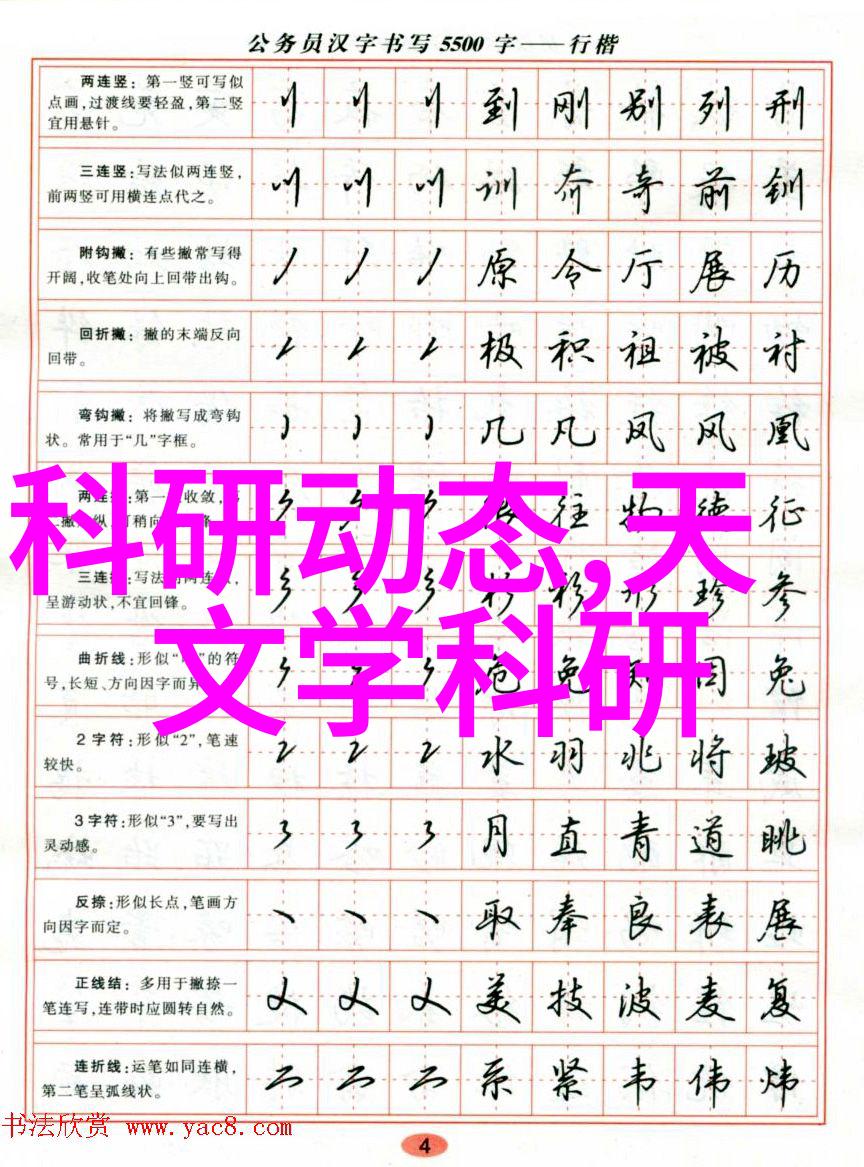 公务员汉字书写5500字——行楷
两连竖：第一竖可写似
点画，过渡线要轻盈，第二竖
宜用悬针。
到 刚 别 列 刑
三连竖：写法似两连竖，
前两竖可用横连点代之。
训 夼 奇 前 钏
附钩撇：有些撇常写得
开阔，收笔处向上回带出钩。
原 令 厅 展 历
回折撇：撇的末端反向
回带。
极 积 祖 被 衬
弯钩撇：将撇写成弯钩
状。常用于“几”字框。
几 凡 凤 风 凰
科研动态,天
文学科研
两连 第一 收敛
往 物 德 征
三连 写法
呈游动状，不宜回锋。
衫 彩 形 珍 参
曲折线：形似 的符
号，长短、方向因字而异
兔
2字符：形似“2”，笔速
较快。
水 羽 兆 将 玻
3字符：形似“3”，要写出
灵动感。
月 直 青 道 眺
反捺：形似长点，笔画方
向因字而定。
取 奉 良 表 展
正线结：多用于撇捺一
笔连写，连带时应圆转自然。
美 技 波 麦 复
连折线：运笔如同连横，
第二笔呈弧线状。
系 紧 韦 伟 炜
书法欣赏 www.yac8.com
4